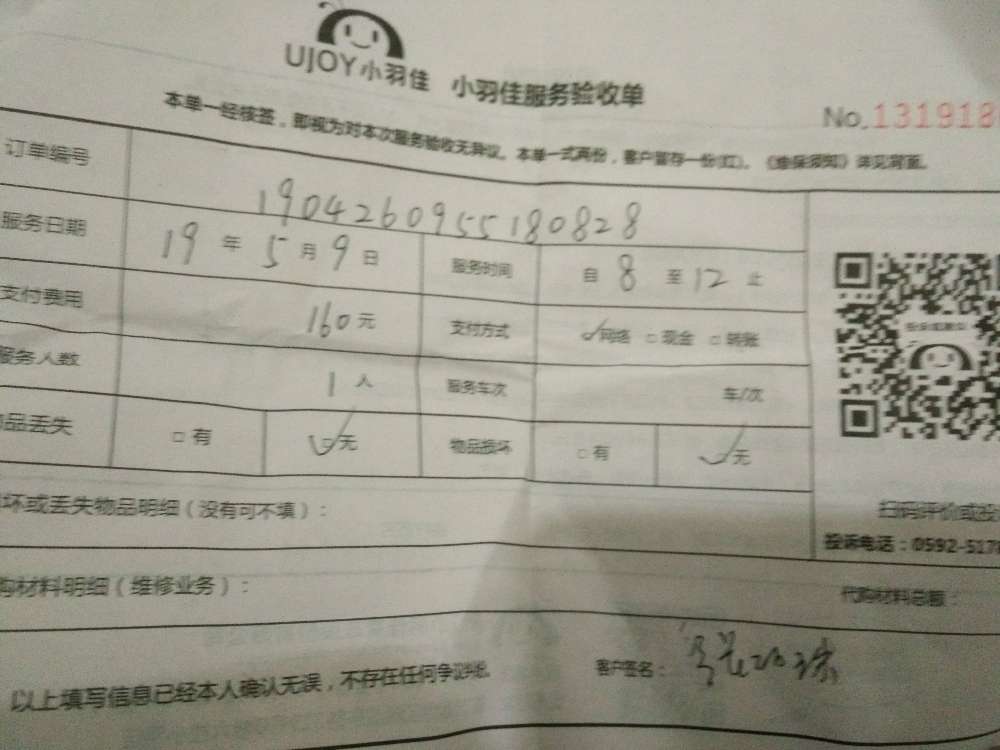 UJOY小羽佳 小羽佳服务验收单
No.131918
本单一经核签，即视为对本次服务验收无异议。本单一式两份，客户留存一份(红)。《维保须知》详见背面。
订单编号 190426095518​0828
服务日期 19年5月9日 服务时间 自8至12止
支付费用 160元 支付方式 ✓网络 □现金 □转账
服务人数 1人 服务车次 车/次
品丢失 □有 ✓无 物品损坏 □有 ✓无
坏或丢失物品明细（没有可不填）：
扫码评价或投
投诉电话：0592-517
购材料明细（维修业务）： 代购材料总额：
以上填写信息已经本人确认无误，不存在任何争议 客户签名：